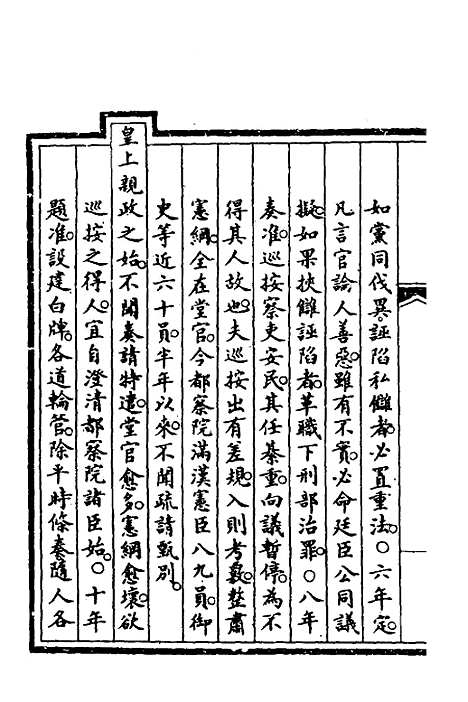 如黨同伐異。誣陷私讎者。必置重法。○六年定。
凡言官論人善惡。雖有不實。必命廷臣公同議
擬。如果挾讎誣陷者。革職下刑部治罪。○八年
奏准。巡按察吏安民。其任綦重。向議暫停。為不
得其人故也。夫巡按出有差規。入則考覈。整肅
憲綱。全在堂官。今都察院滿漢憲臣八九員。御
史等近六十員。半年以來。不聞疏請甄別。
皇上親政之始。不聞奏請特遣。堂官愈多。憲綱愈壞。欲
巡按之得人。宜自澄清都察院諸臣始。○十年
題准。設建白牌。各道輪管。除平時條奏隨人各